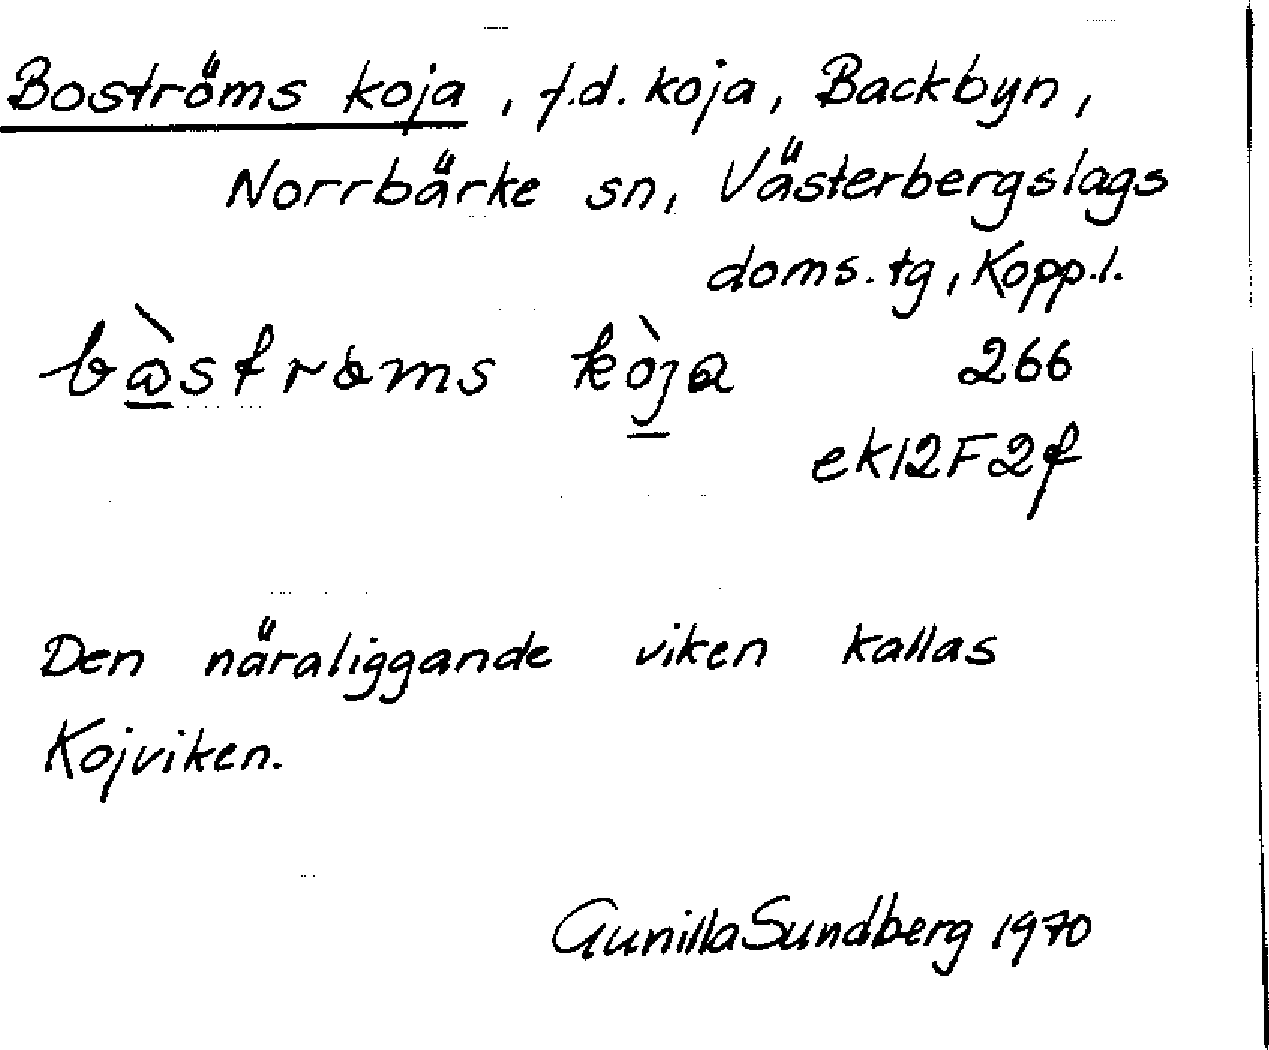 Boströms koja, f.d. koja, Backbyn,
Norrbärke sn, Västerbergslags
doms.tg, Kopp.l.
266
ek12F2f
Den näraliggande viken kallas
Kojviken.
Gunilla Sundberg 1970